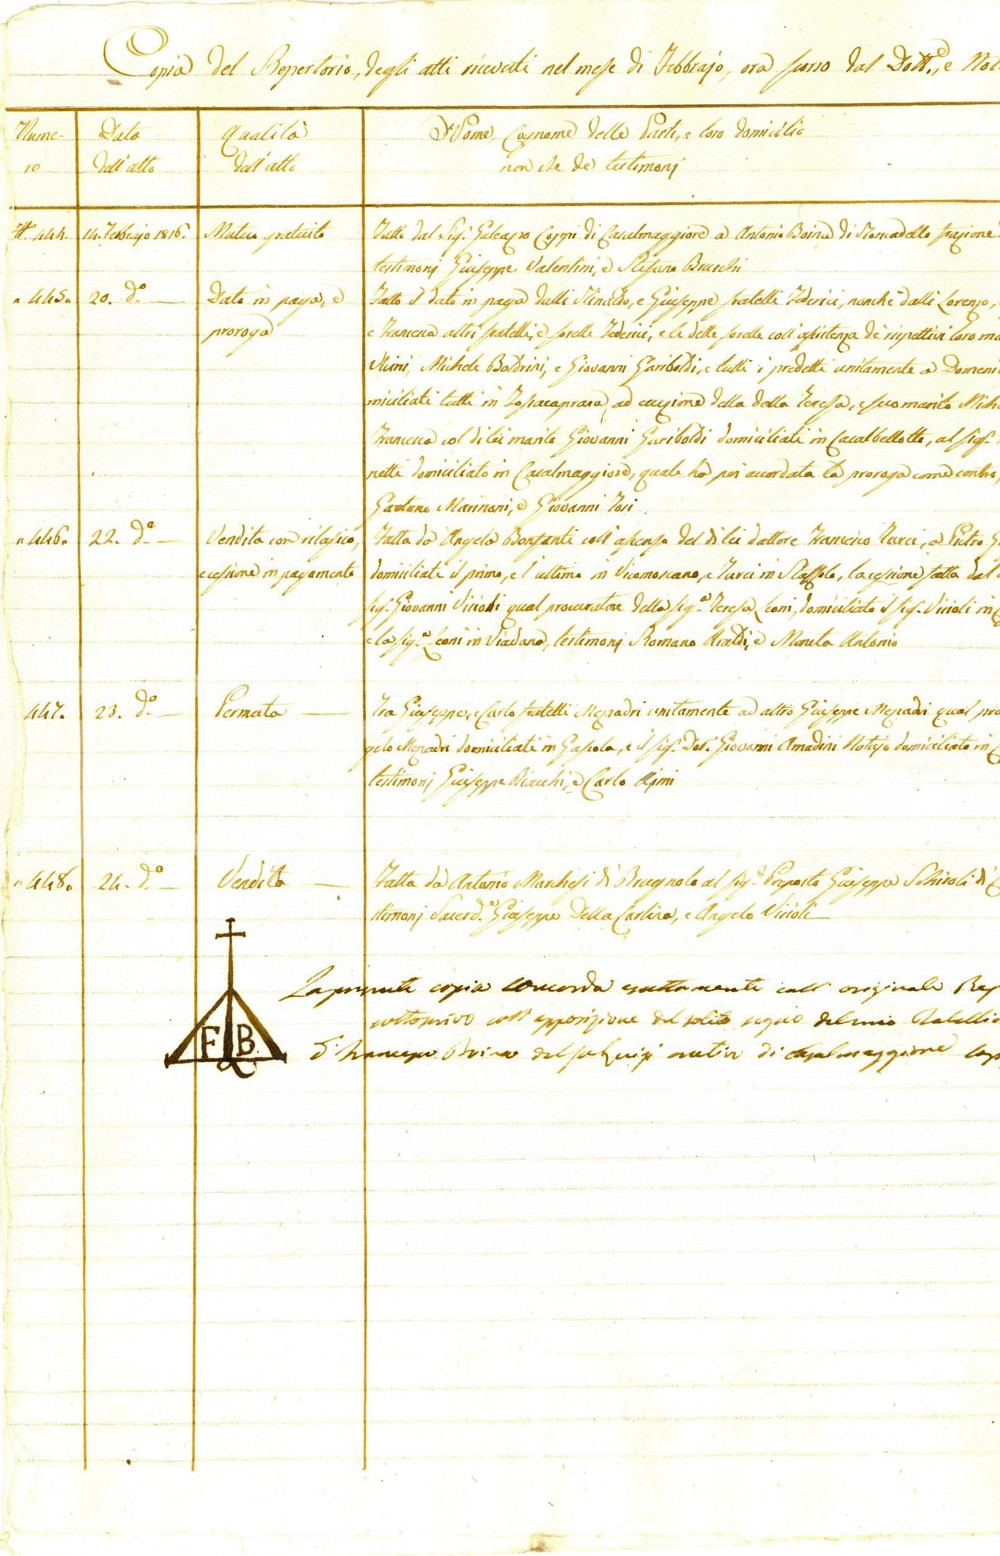 Copia del Repertorio, degli atti ricevuti nel mese di Febbrajo, ora scorso dal Dott.e, e Not
Nume-
ro
Data
dell'atto
Qualità
dell'atto
Nome, Cognome delle Parti, e loro domicilio
non che de' testimonj
N.° 444. 14. Febbrajo 1816. Mutuo gratuito Fatto dal Sig.r Galeazzo Coppi di Casalmaggiore a Antonio Boina di Roncadello frazione
testimonj Giuseppe Valentini, e Stefano Bruschi
" 445. 20. d.o Dato in paga, e Fatto il dato in paga dalli Rinaldo, e Giuseppe fratelli Federici, nonchè dalli Lorenzo,
proroga e Francesca altri fratelli, e sorelle Federici, e le dette sorelle coll'assistenza de' rispettivi loro ma
Michele Boldrini, e Giovanni Gariboldi, e tutti i predetti unitamente a Domeni
miciliati tutti in Fossacaprara, ad eccezione della detta Teresa, e suo marito Mich
Francesca col di lei marito Giovanni Gariboldi domiciliati in Casalbellotto, al Sig.r
netti domiciliato in Casalmaggiore, quale ha poi accordata la proroga come contro,
Gaetano Marinoni, e Giovanni Tosi.
" 446. 22. d.o Vendita con rilascio, Fatta da Angela Bonfanti coll'assenso del di lei dattore Francesco Turci, a Pietro G
e cessione in pagamento domiciliati il primo, e l'ultimo in Vicomoscano, e Turci in Staffolo, la cessione fatta dal
Sig.r Giovanni Vicioli qual procuratore della Sig.a Teresa Leoni, domiciliato il Sig.r Vicioli in
e la Sig.a Leoni in Viadana, testimonj Romano Araldi, e Moreta Antonio
447. 23. d.o Permuta Tra Giuseppe, e Carlo fratelli Menadri unitamente ad altro Giuseppe Menadri qual pro
gelo Menadri domiciliati in Gazzolo, e il Sig.r Dot.r Giovanni Amadini Notajo domiciliato in
testimonj Giuseppe Bianchi, e Carlo Ajmi
" 448. 24. d.o Vendita Fatta da Antonio Marchesi di Brugnolo al Sig.r Preposto Giuseppe Schiroli di
stimonj Sacerd.e Giuseppe Della Cartira, e Angelo Vicioli
F B.
La presente copia concorda esattamente coll'originale Rep
sottoscrivo coll'apposizione del solito segno del mio Tabellio
D.r Francesco Boina del fu Luigi notaro di Casalmaggiore